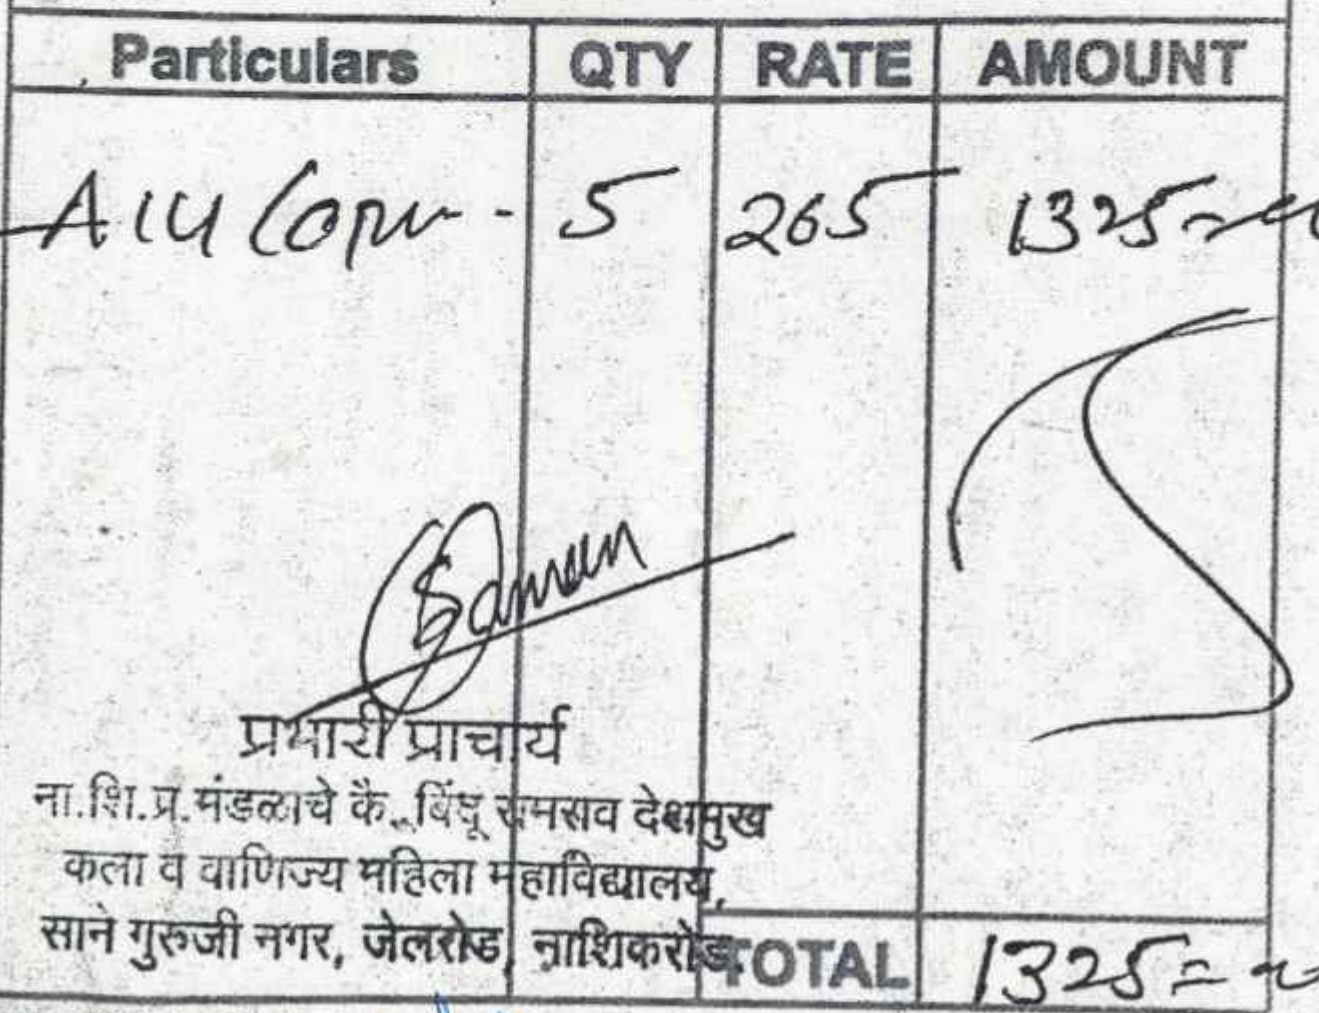 Particulars QTY RATE AMOUNT
A14 5 265 1325=
प्रभारी प्राचार्य
ना.शि.प्र.मंडळाचे कै. बिंदू रामराव देशमुख
कला व वाणिज्य महिला महाविद्यालय,
साने गुरुजी नगर, जेलरोड, नाशिकरोड.
TOTAL 1325=